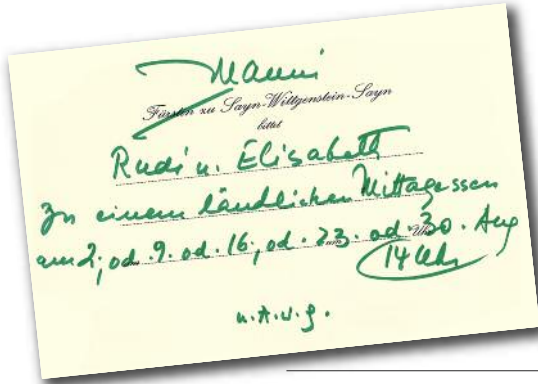 Manni
Fürsten zu Sayn-Wittgenstein-Sayn
bittet
Rudi u. Elisabeth
zu einem ländlichen Mittagessen
am 2., od. 9. od. 16., od. 23. od. 30. Aug
Uhr
14 Uhr
u. A. w. g.